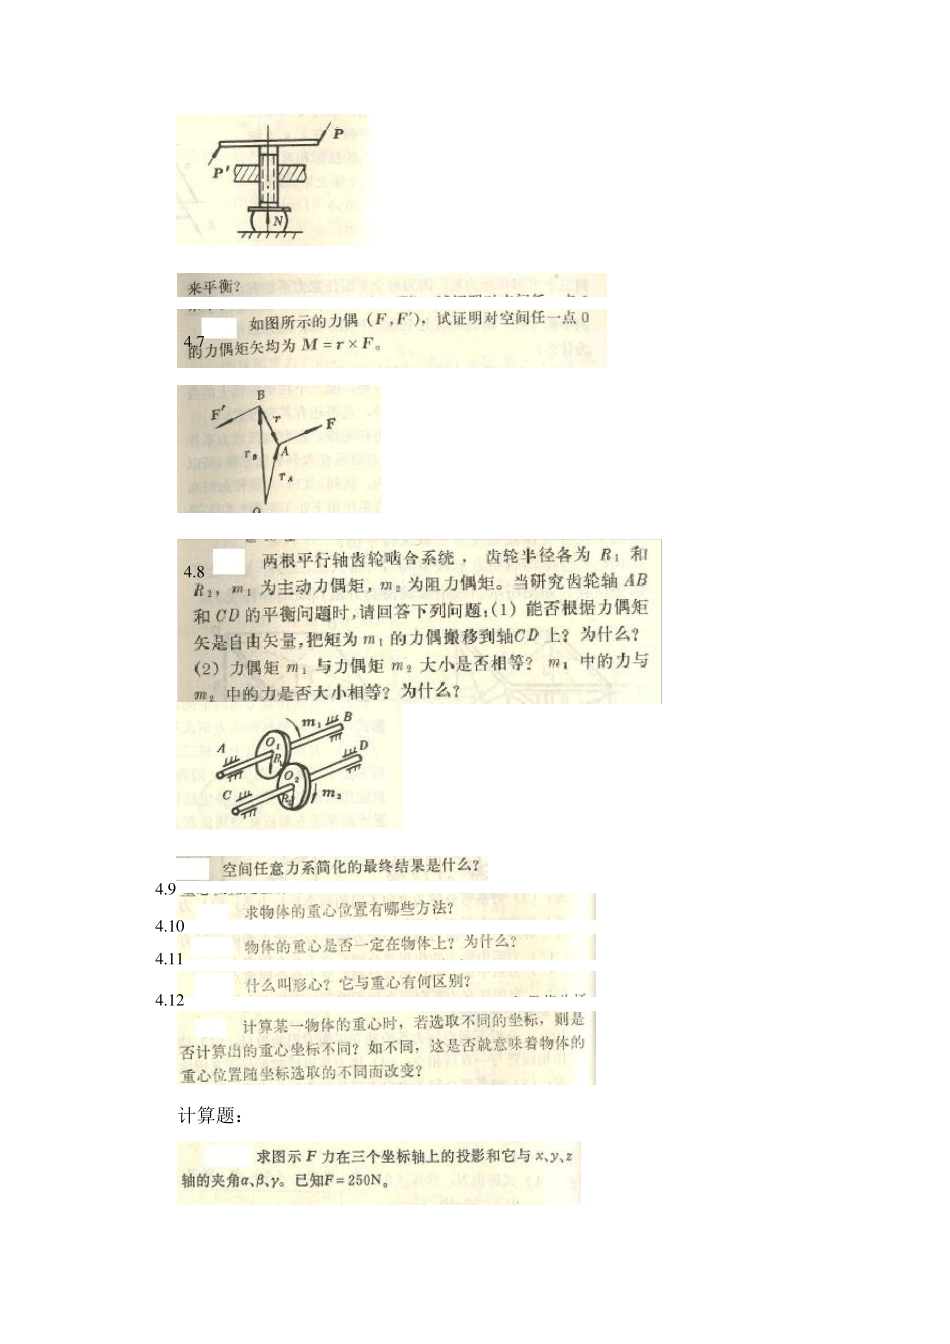 P
P'
N
来平衡?
4.7 如图所示的力偶（F,F′），试证明对空间任一点0
的力偶矩矢均为 M = r × F。
B
F'
r
F
A
r_B
r_A
4.8 两根平行轴齿轮啮合系统，齿轮半径各为 R₁ 和
R₂，m₁ 为主动力偶矩，m₂ 为阻力偶矩。当研究齿轮轴 AB
和 CD 的平衡问题时，请回答下列问题：(1) 能否根据力偶矩
矢是自由矢量，把矩为 m₁ 的力偶搬移到轴CD 上？为什么？
(2) 力偶矩 m₁ 与力偶矩 m₂ 大小是否相等？ m₁ 中的力与
m₂ 中的力是否大小相等？为什么？
m₁
B
A
O₁
D
R₁
O₂
C
R₂
m₂
空间任意力系简化的最终结果是什么？
4.9
求物体的重心位置有哪些方法？
4.10
物体的重心是否一定在物体上？为什么？
4.11
什么叫形心？它与重心有何区别？
4.12
计算某一物体的重心时，若选取不同的坐标，则是
否计算出的重心坐标不同？如不同，这是否就意味着物体的
重心位置随坐标选取的不同而改变？
计算题：
求图示 F 力在三个坐标轴上的投影和它与 x、y、z
轴的夹角α、β、γ。已知F = 250N。